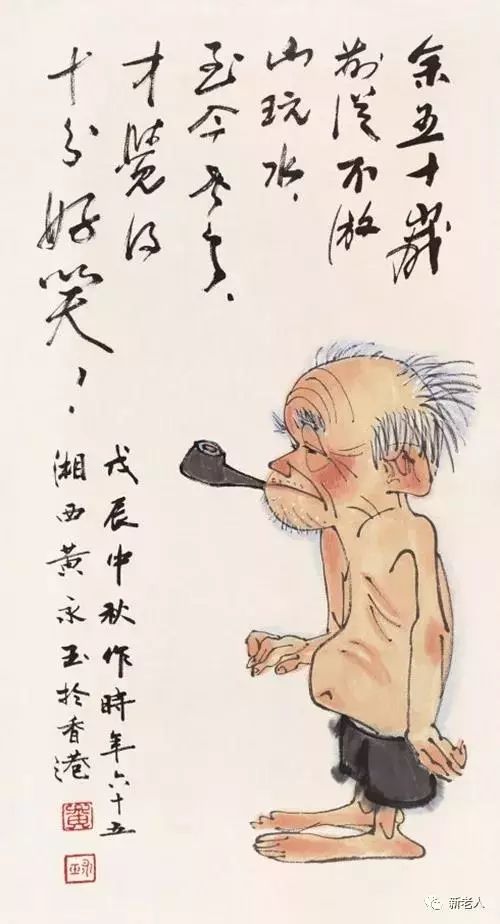 余五十歲
前從不游
山玩水、
至今老了、
才覺得
十分好笑！
戊辰中秋作時年六十五
湘西黃永玉於香港
黃
永玉
新老人